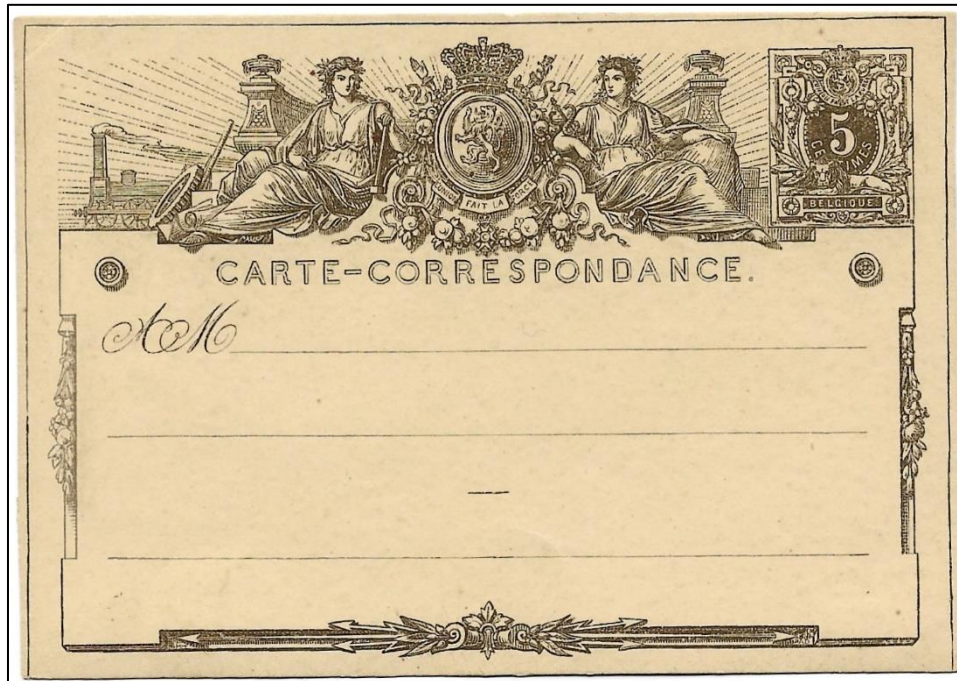 L'UNION FAIT LA FORCE
5
CENTIMES
BELGIQUE
CARTE-CORRESPONDANCE.
A M